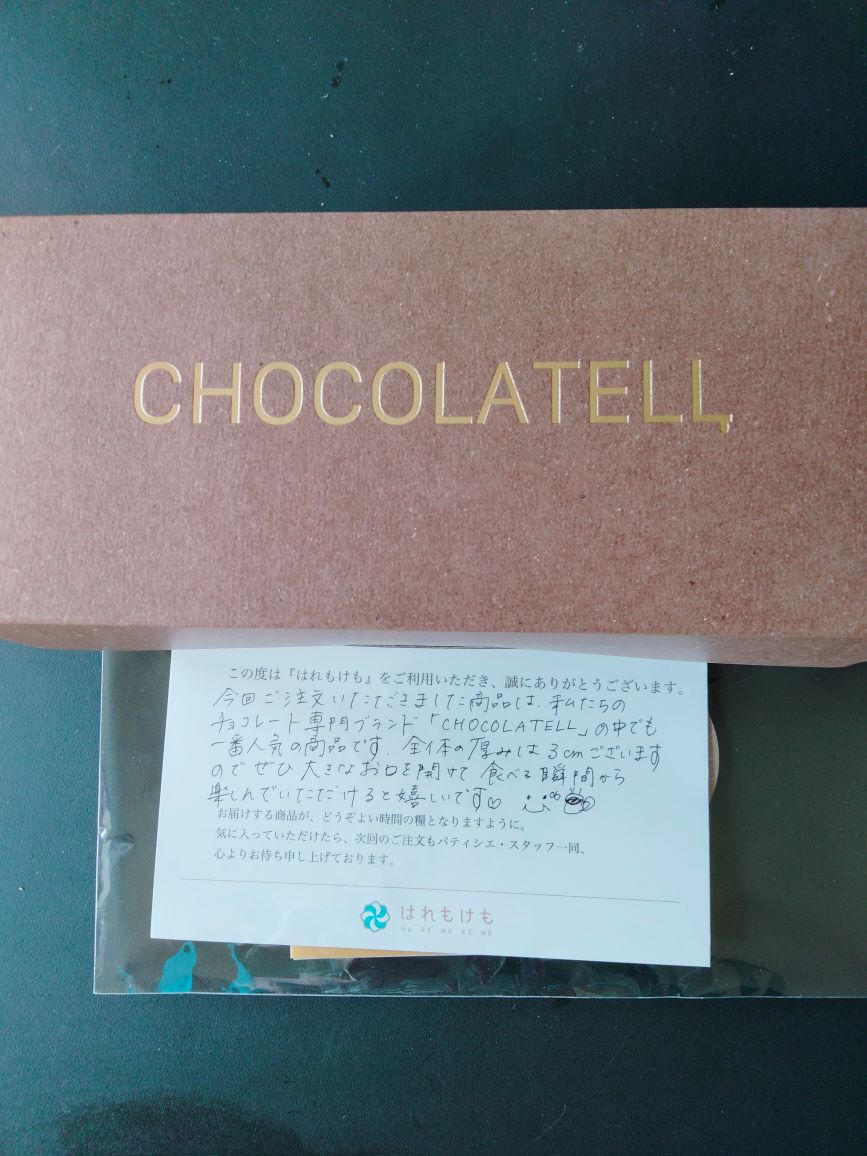 CHOCOLATELL
この度は『はれもけも』をご利用いただき、誠にありがとうございます。
今回ご注文いただきました商品は、私たちの
チョコレート専門ブランド「CHOCOLATELL」の中でも
一番人気の商品です。全体の厚みは3cmございます
のでぜひ大きなお口を開けて食べる瞬間から
楽しんでいただけると嬉しいです♡
お届けする商品が、どうぞよい時間の糧となりますように。
気に入っていただけたら、次回のご注文もパティシエ・スタッフ一同、
心よりお待ち申し上げております。
はれもけも
HA RE MO KE MO